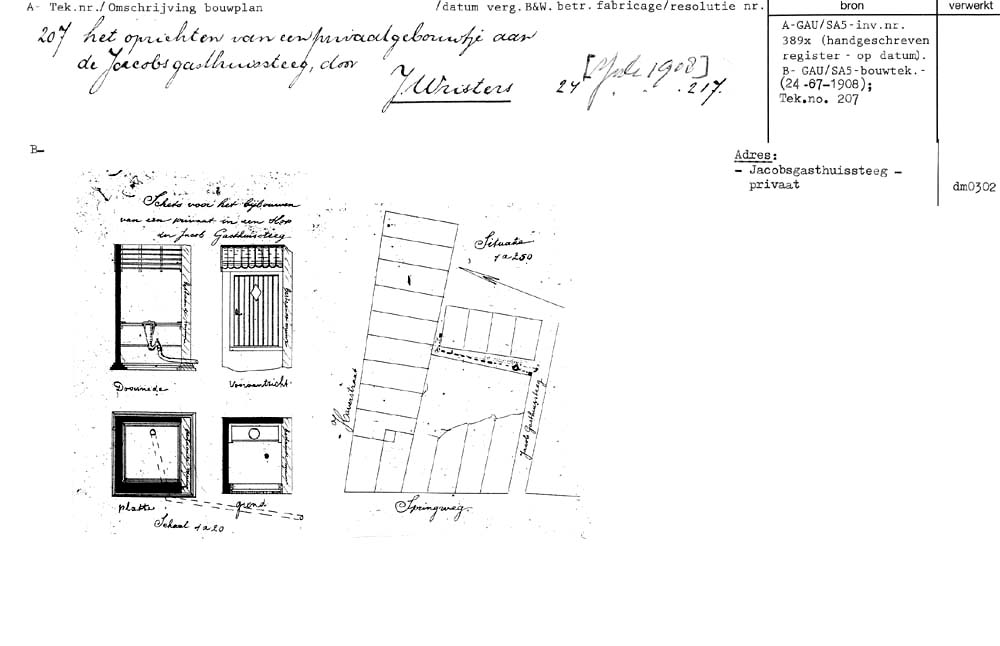 A- Tek.nr./Omschrijving bouwplan
/datum verg.B&W.betr.fabricage/resolutie nr.
bron
verwerkt
207 het oprichten van een privaatgebouwtje aan
de Jacobsgasthuissteeg, door
J Wristers
24 [July 1908] 217.
A-GAU/SA5-inv.nr.
389x (handgeschreven
register - op datum).
B- GAU/SA5-bouwtek.-
(24-67-1908);
Tek.no. 207
B-
Adres:
- Jacobsgasthuissteeg -
privaat
dm0302
Schets voor het bijbouwen
van een privaat in een Slop
der Jacob Gasthuissteeg
Situatie
1 a 250
Doorsnede
Vooraanzicht
platte
grond
Schaal 1 a 20
Jacob Gasthuissteeg
Springweg